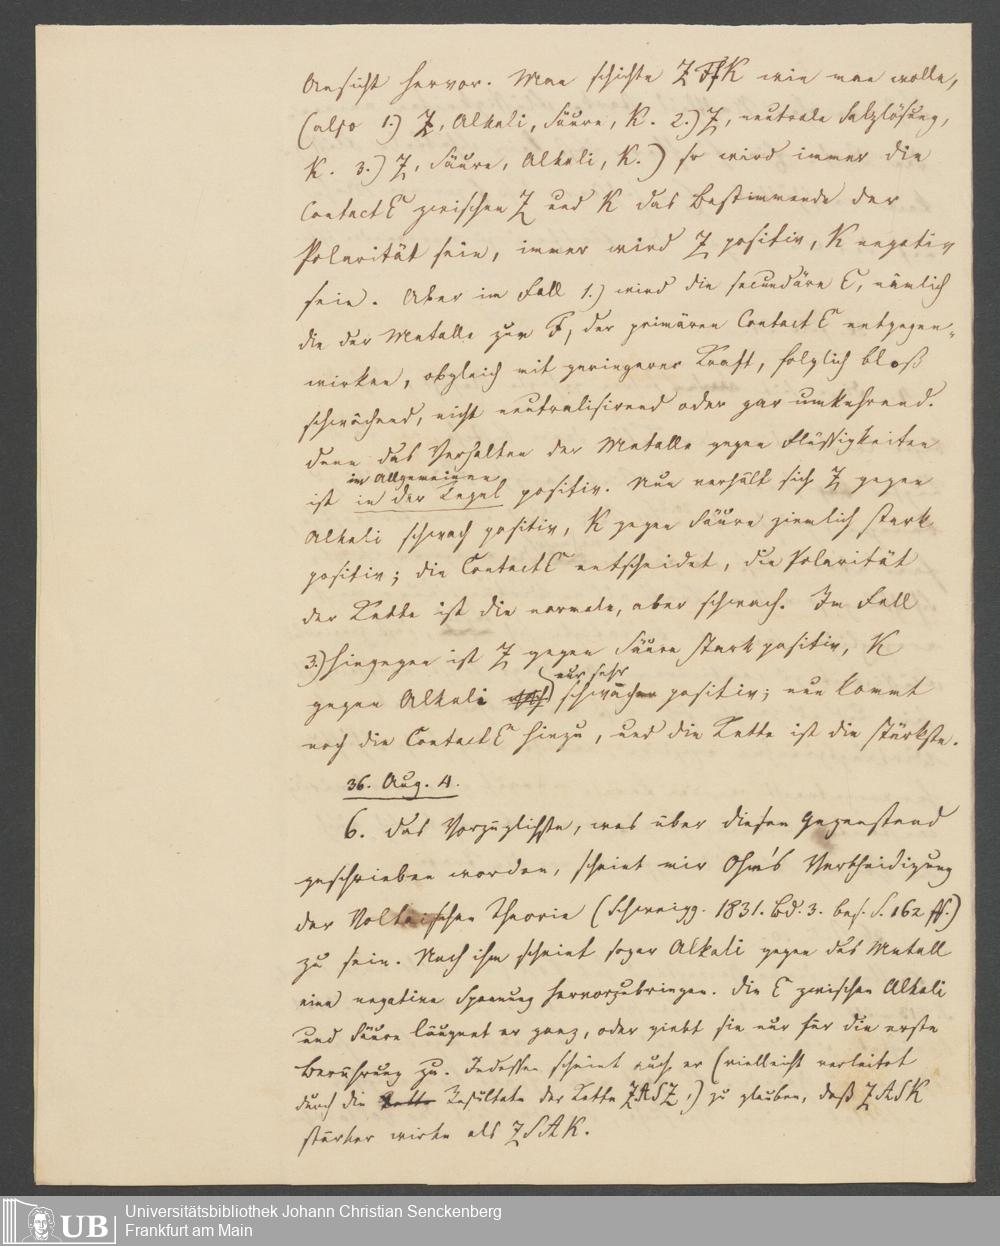 Ansicht hervor. Man schichte Z FK wie man wolle,
(also 1.) Z, Alkali, Säure, K. 2.) Z, neutrale Salzlösung,
K. 3.) Z, Säure, Alkali, K.) so wird immer die
Contact E zwischen Z und K das Bestimmende der
Polarität sein, immer wird Z positiv, K negativ
sein. Aber im Fall 1.) wird die secundäre E, nämlich
die der Metalle zur F, der primären Contact E entgegen-
wirken, obgleich mit geringerer Kraft, folglich bloß
schwächend, nicht neutralisirend oder gar umkehrend.
denn das Verhalten der Metalle gegen Flüssigkeiten
im Allgemeinen
ist in der Regel positiv. Nun verhält sich Z gegen
Alkali schwach positiv, K gegen Säure ziemlich stark
positiv; die Contact E entscheidet, die Polarität
der Kette ist die normale, aber schwach. Im Fall
3.) hingegen ist Z gegen Säure stark positiv, K
nur sehr
gegen Alkali schwächer positiv; nun kommt
noch die Contact E hinzu, und die Kette ist die stärkste.
36. Aug. 4.
6. Das Vorzüglichste, was über diesen Gegenstand
geschrieben worden, scheint mir Ohm's Vertheidigung
der Voltaischen Theorie (Schweigg. 1831. Bd. 3. bes. S. 162 ff.)
zu sein. Nach ihm scheint sogar Alkali gegen das Metall
eine negative Spannung hervorzubringen. Die E zwischen Alkali
und Säure läugnet er ganz, oder giebt sie nur für die erste
Berührung zu. Indessen scheint auch er (vielleicht verleitet
durch die Kette Resultate der Kette ZASZ,) zu glauben, daß ZASK
stärker wirke als ZSAK.
UB
Universitätsbibliothek Johann Christian Senckenberg
Frankfurt am Main